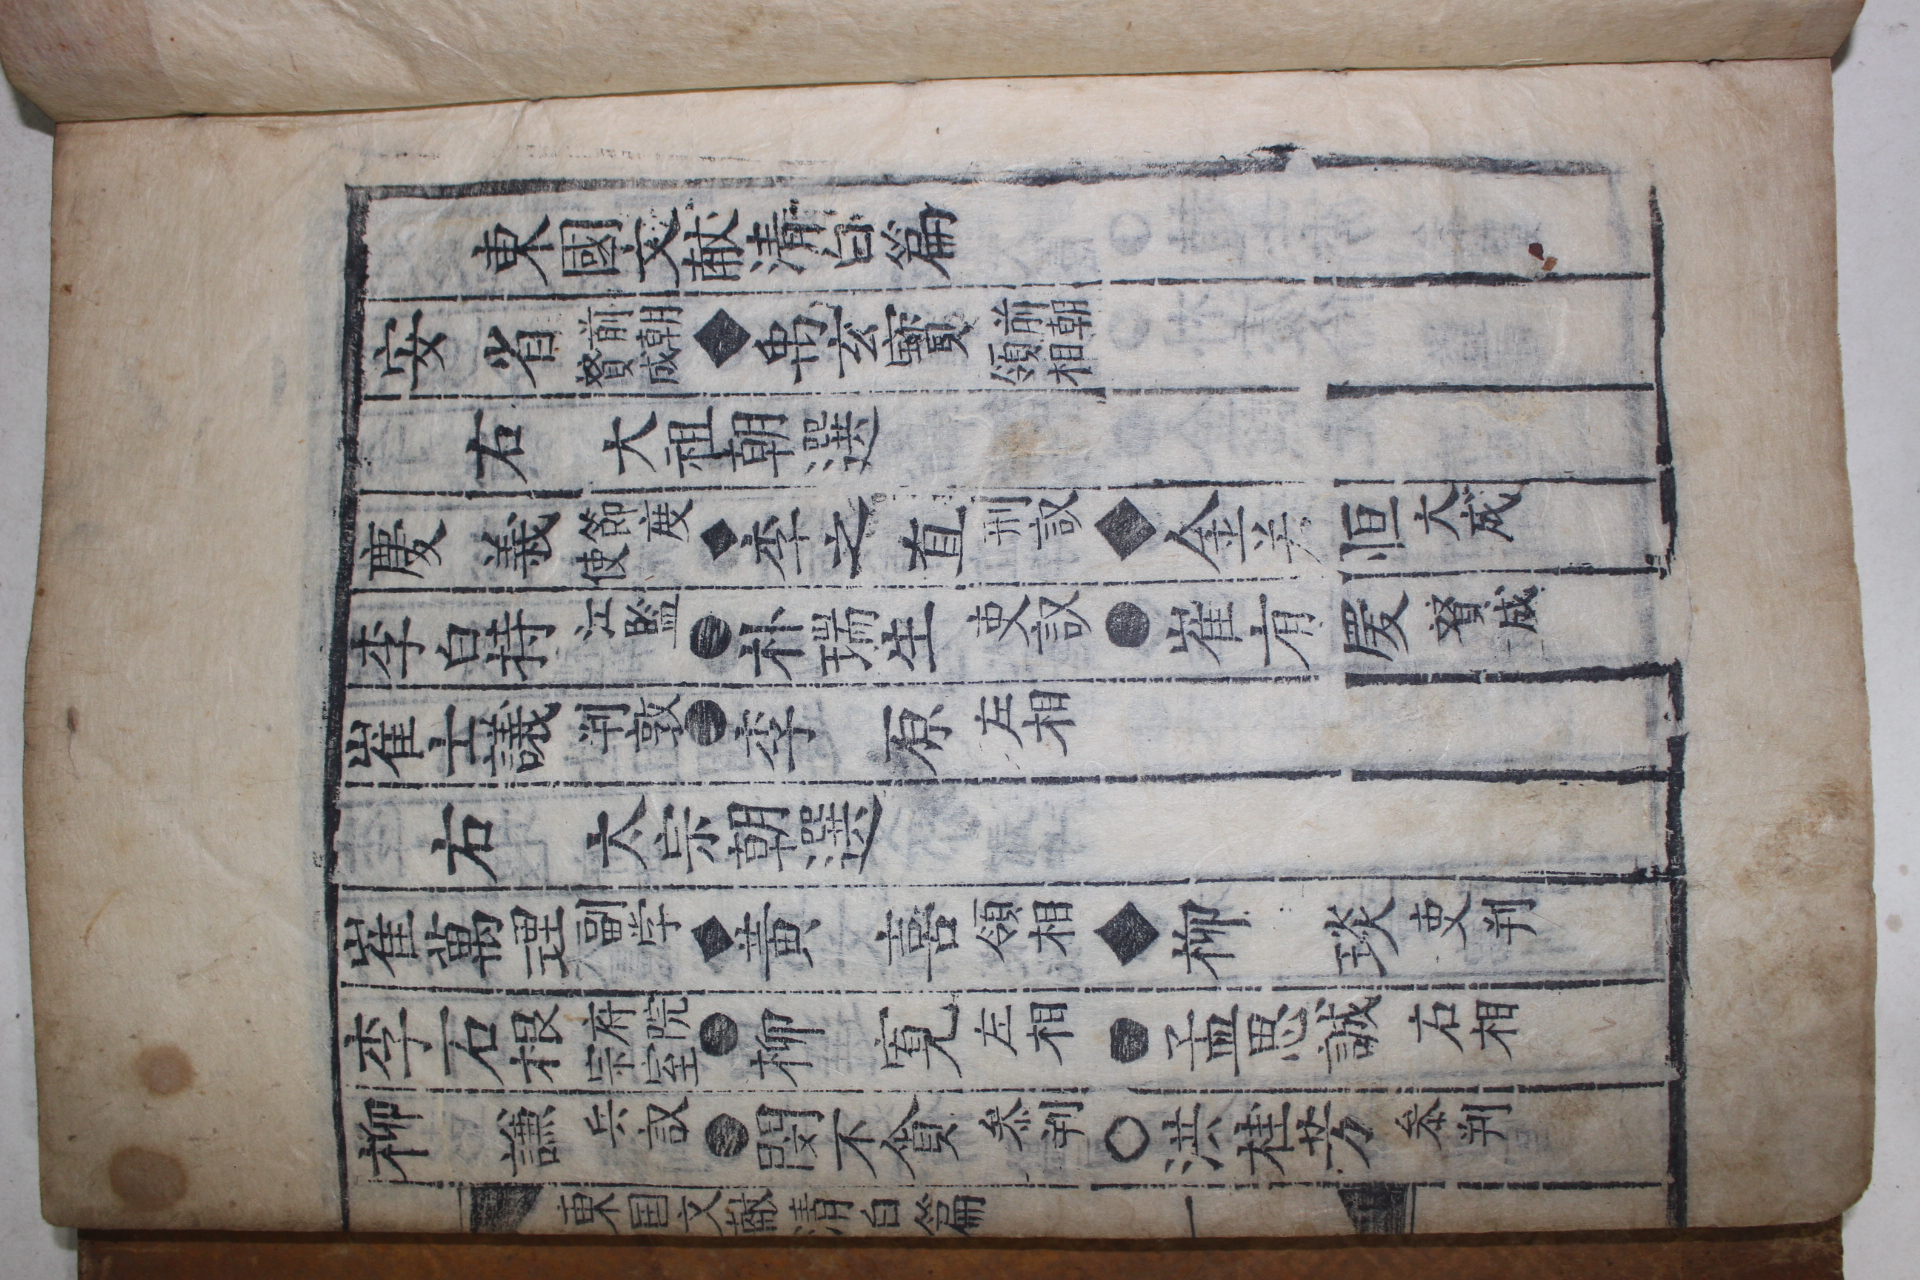 東國文獻淸白篇
安省 前朝贊成 ◆ 禹玄寶 前朝領相
右 大祖朝選
慶義 節度使 ◆ 李之直 刑議 ◆ 金若恒 大成
李白持 江監 ● 朴瑞生 吏議 ● 崔有慶 贊成
崔士議 判敦 ● 李原 左相
右 太宗朝選
崔萬理 副学 ◆ 黃喜 領相 ◆ 柳琰 吏判
李石根 府院宗室 ● 柳寬 左相 ● 孟思誠 右相
柳謙 兵議 ● 閔不貪 叅判 ○ 洪桂芳 叅判
東国文献淸白篇 一